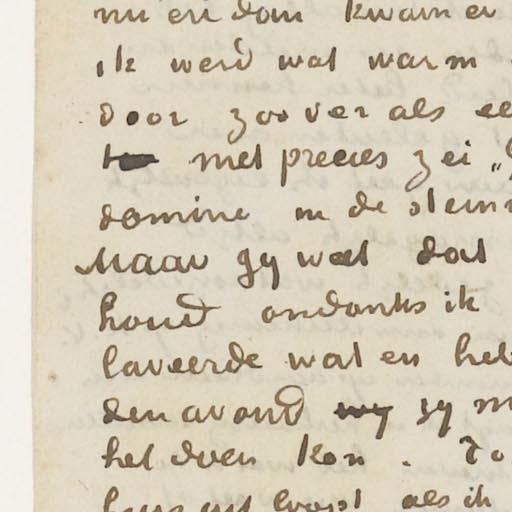 nu en dan kwam er
ik werd wat warm
door zoover als ee
met precies zei „
domine in de stem
Maar gy weet dat
houd ondanks ik
laveerde wat en heb
den avond zy m
het doen kon. To
als ik